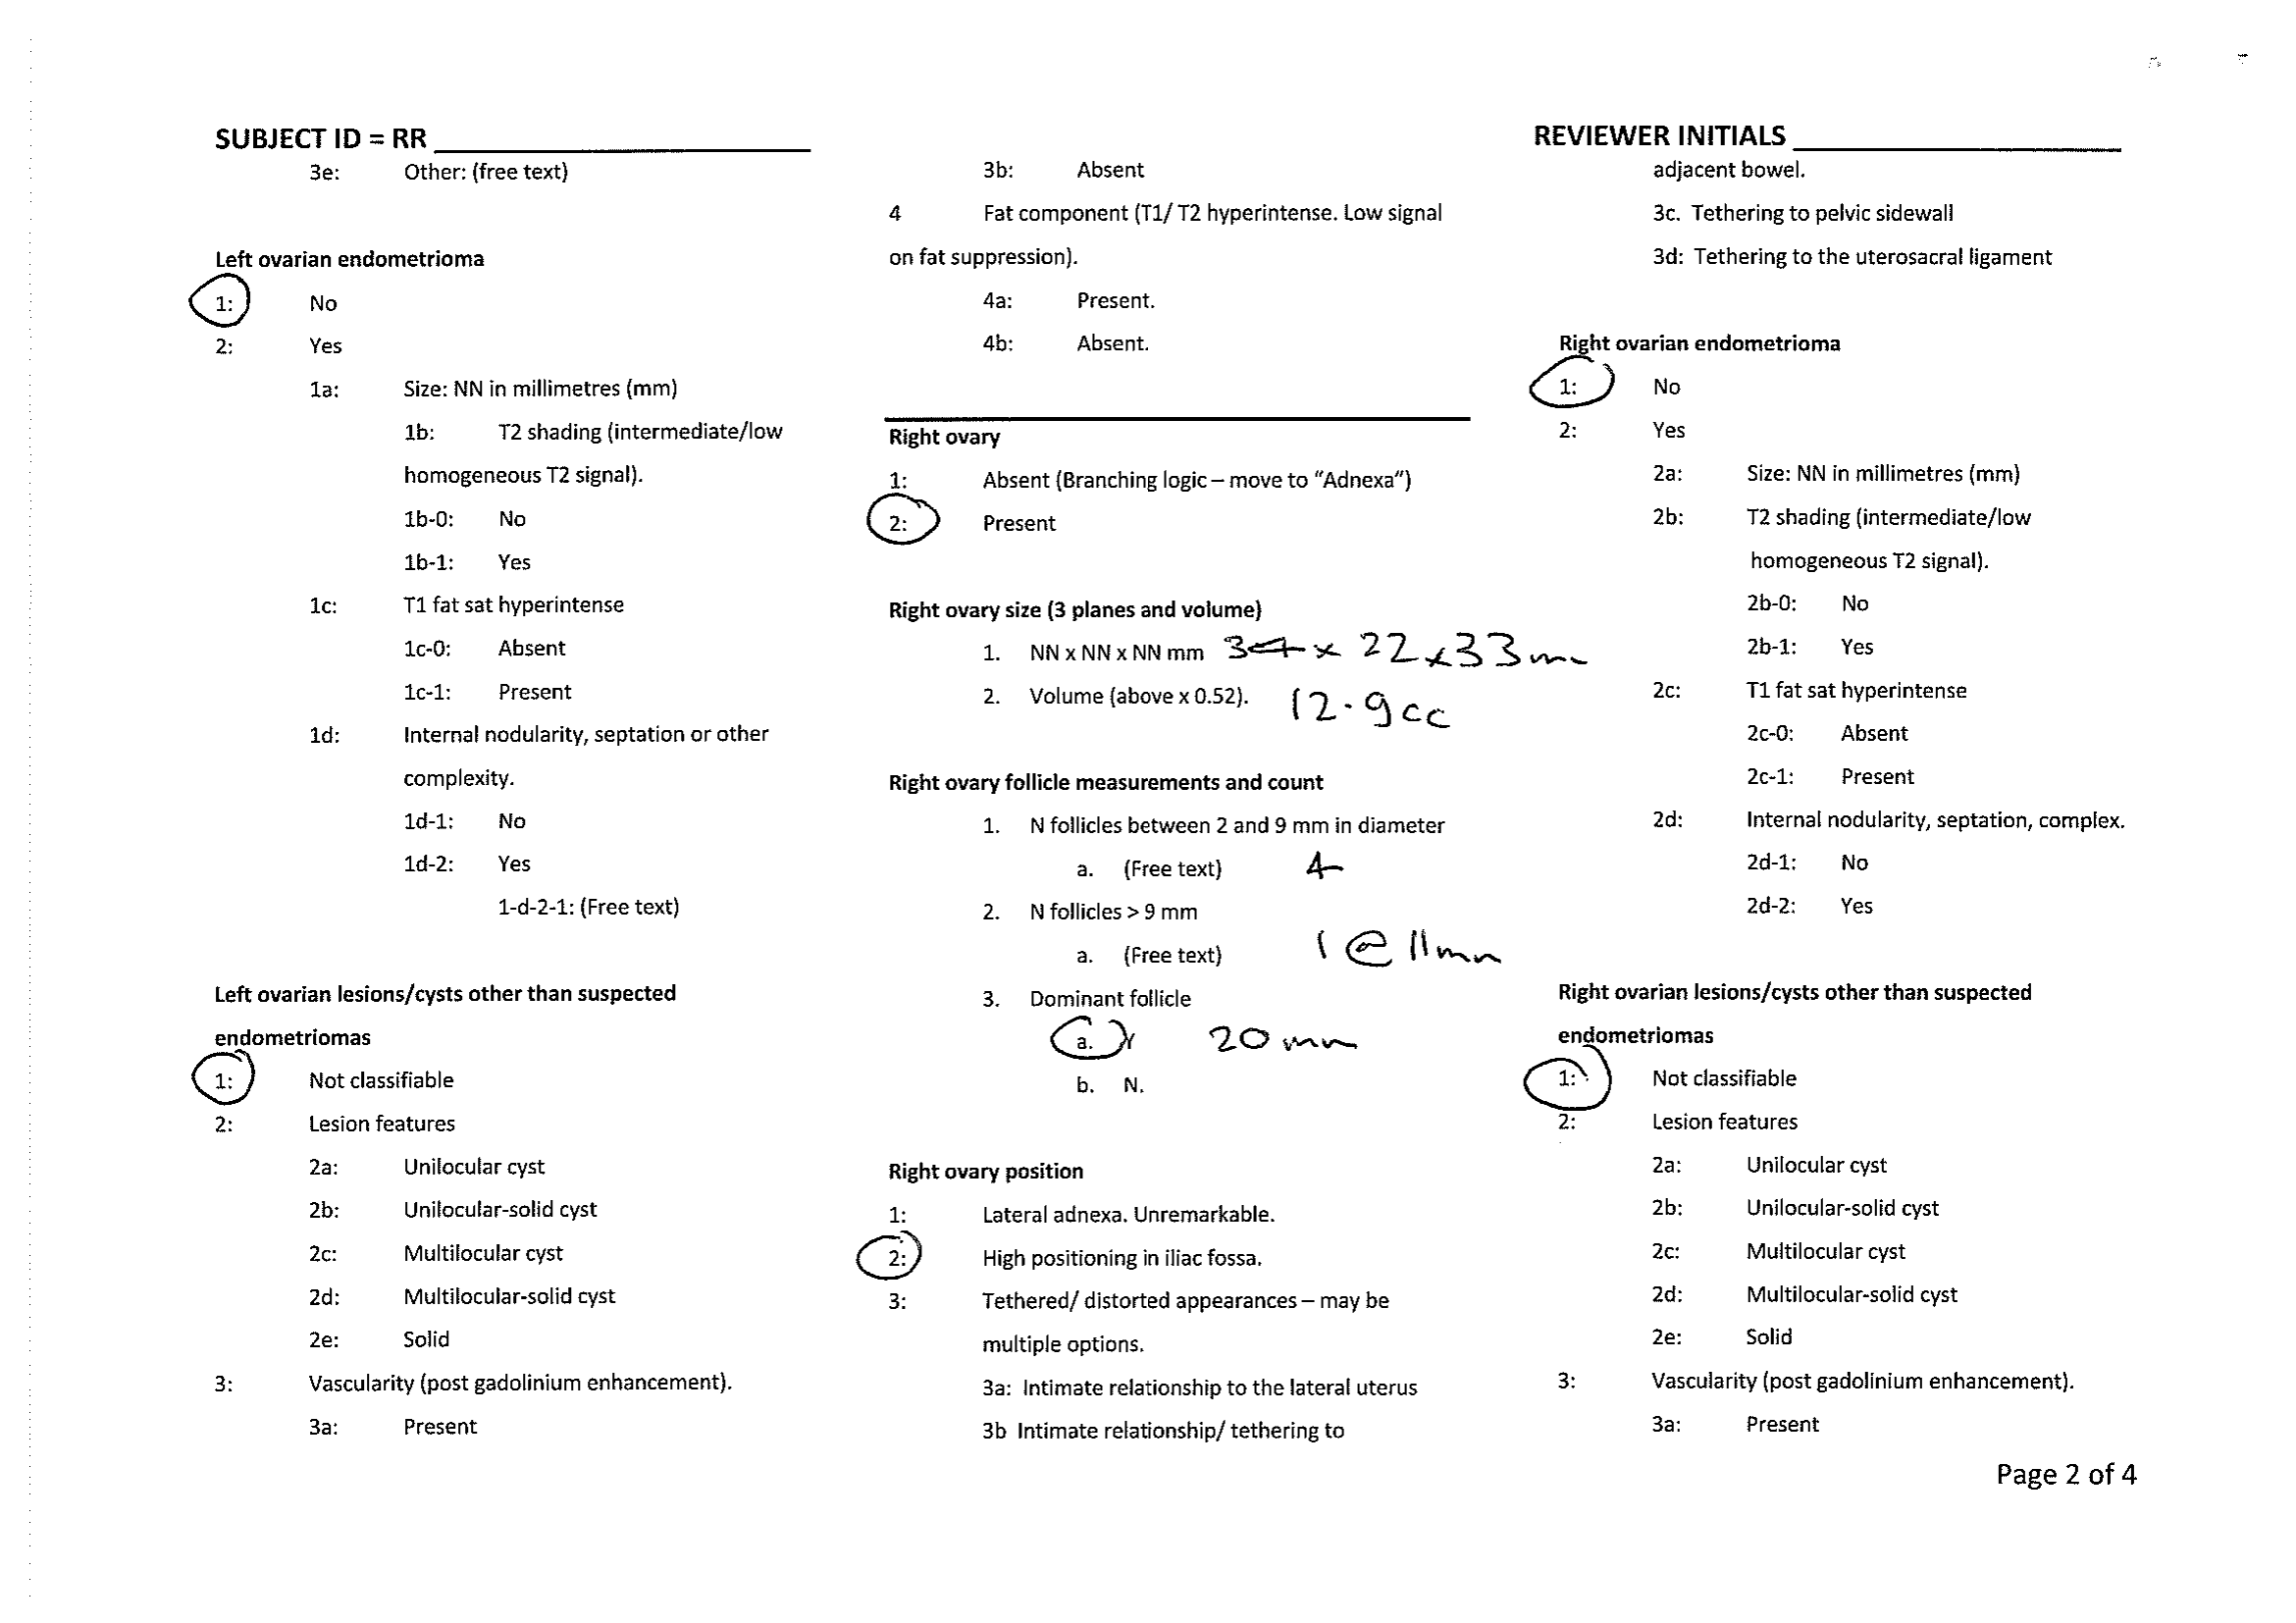 SUBJECT ID = RR
REVIEWER INITIALS
3e: Other: (free text)
Left ovarian endometrioma
1: No
2: Yes
1a: Size: NN in millimetres (mm)
1b: T2 shading (intermediate/low
homogeneous T2 signal).
1b-0: No
1b-1: Yes
1c: T1 fat sat hyperintense
1c-0: Absent
1c-1: Present
1d: Internal nodularity, septation or other
complexity.
1d-1: No
1d-2: Yes
1-d-2-1: (Free text)
Left ovarian lesions/cysts other than suspected
endometriomas
1: Not classifiable
2: Lesion features
2a: Unilocular cyst
2b: Unilocular-solid cyst
2c: Multilocular cyst
2d: Multilocular-solid cyst
2e: Solid
3: Vascularity (post gadolinium enhancement).
3a: Present
3b: Absent
4 Fat component (T1/ T2 hyperintense. Low signal
on fat suppression).
4a: Present.
4b: Absent.
Right ovary
1: Absent (Branching logic – move to “Adnexa”)
2: Present
Right ovary size (3 planes and volume)
1. NN x NN x NN mm 34 x 22 x 33 mm
2. Volume (above x 0.52). 12.9cc
Right ovary follicle measurements and count
1. N follicles between 2 and 9 mm in diameter
a. (Free text) 4
2. N follicles > 9 mm
a. (Free text) 1 @ 11mm
3. Dominant follicle
a. Y 20 mm
b. N.
Right ovary position
1: Lateral adnexa. Unremarkable.
2: High positioning in iliac fossa.
3: Tethered/ distorted appearances – may be
multiple options.
3a: Intimate relationship to the lateral uterus
3b Intimate relationship/ tethering to
adjacent bowel.
3c. Tethering to pelvic sidewall
3d: Tethering to the uterosacral ligament
Right ovarian endometrioma
1: No
2: Yes
2a: Size: NN in millimetres (mm)
2b: T2 shading (intermediate/low
homogeneous T2 signal).
2b-0: No
2b-1: Yes
2c: T1 fat sat hyperintense
2c-0: Absent
2c-1: Present
2d: Internal nodularity, septation, complex.
2d-1: No
2d-2: Yes
Right ovarian lesions/cysts other than suspected
endometriomas
1: Not classifiable
2: Lesion features
2a: Unilocular cyst
2b: Unilocular-solid cyst
2c: Multilocular cyst
2d: Multilocular-solid cyst
2e: Solid
3: Vascularity (post gadolinium enhancement).
3a: Present
Page 2 of 4